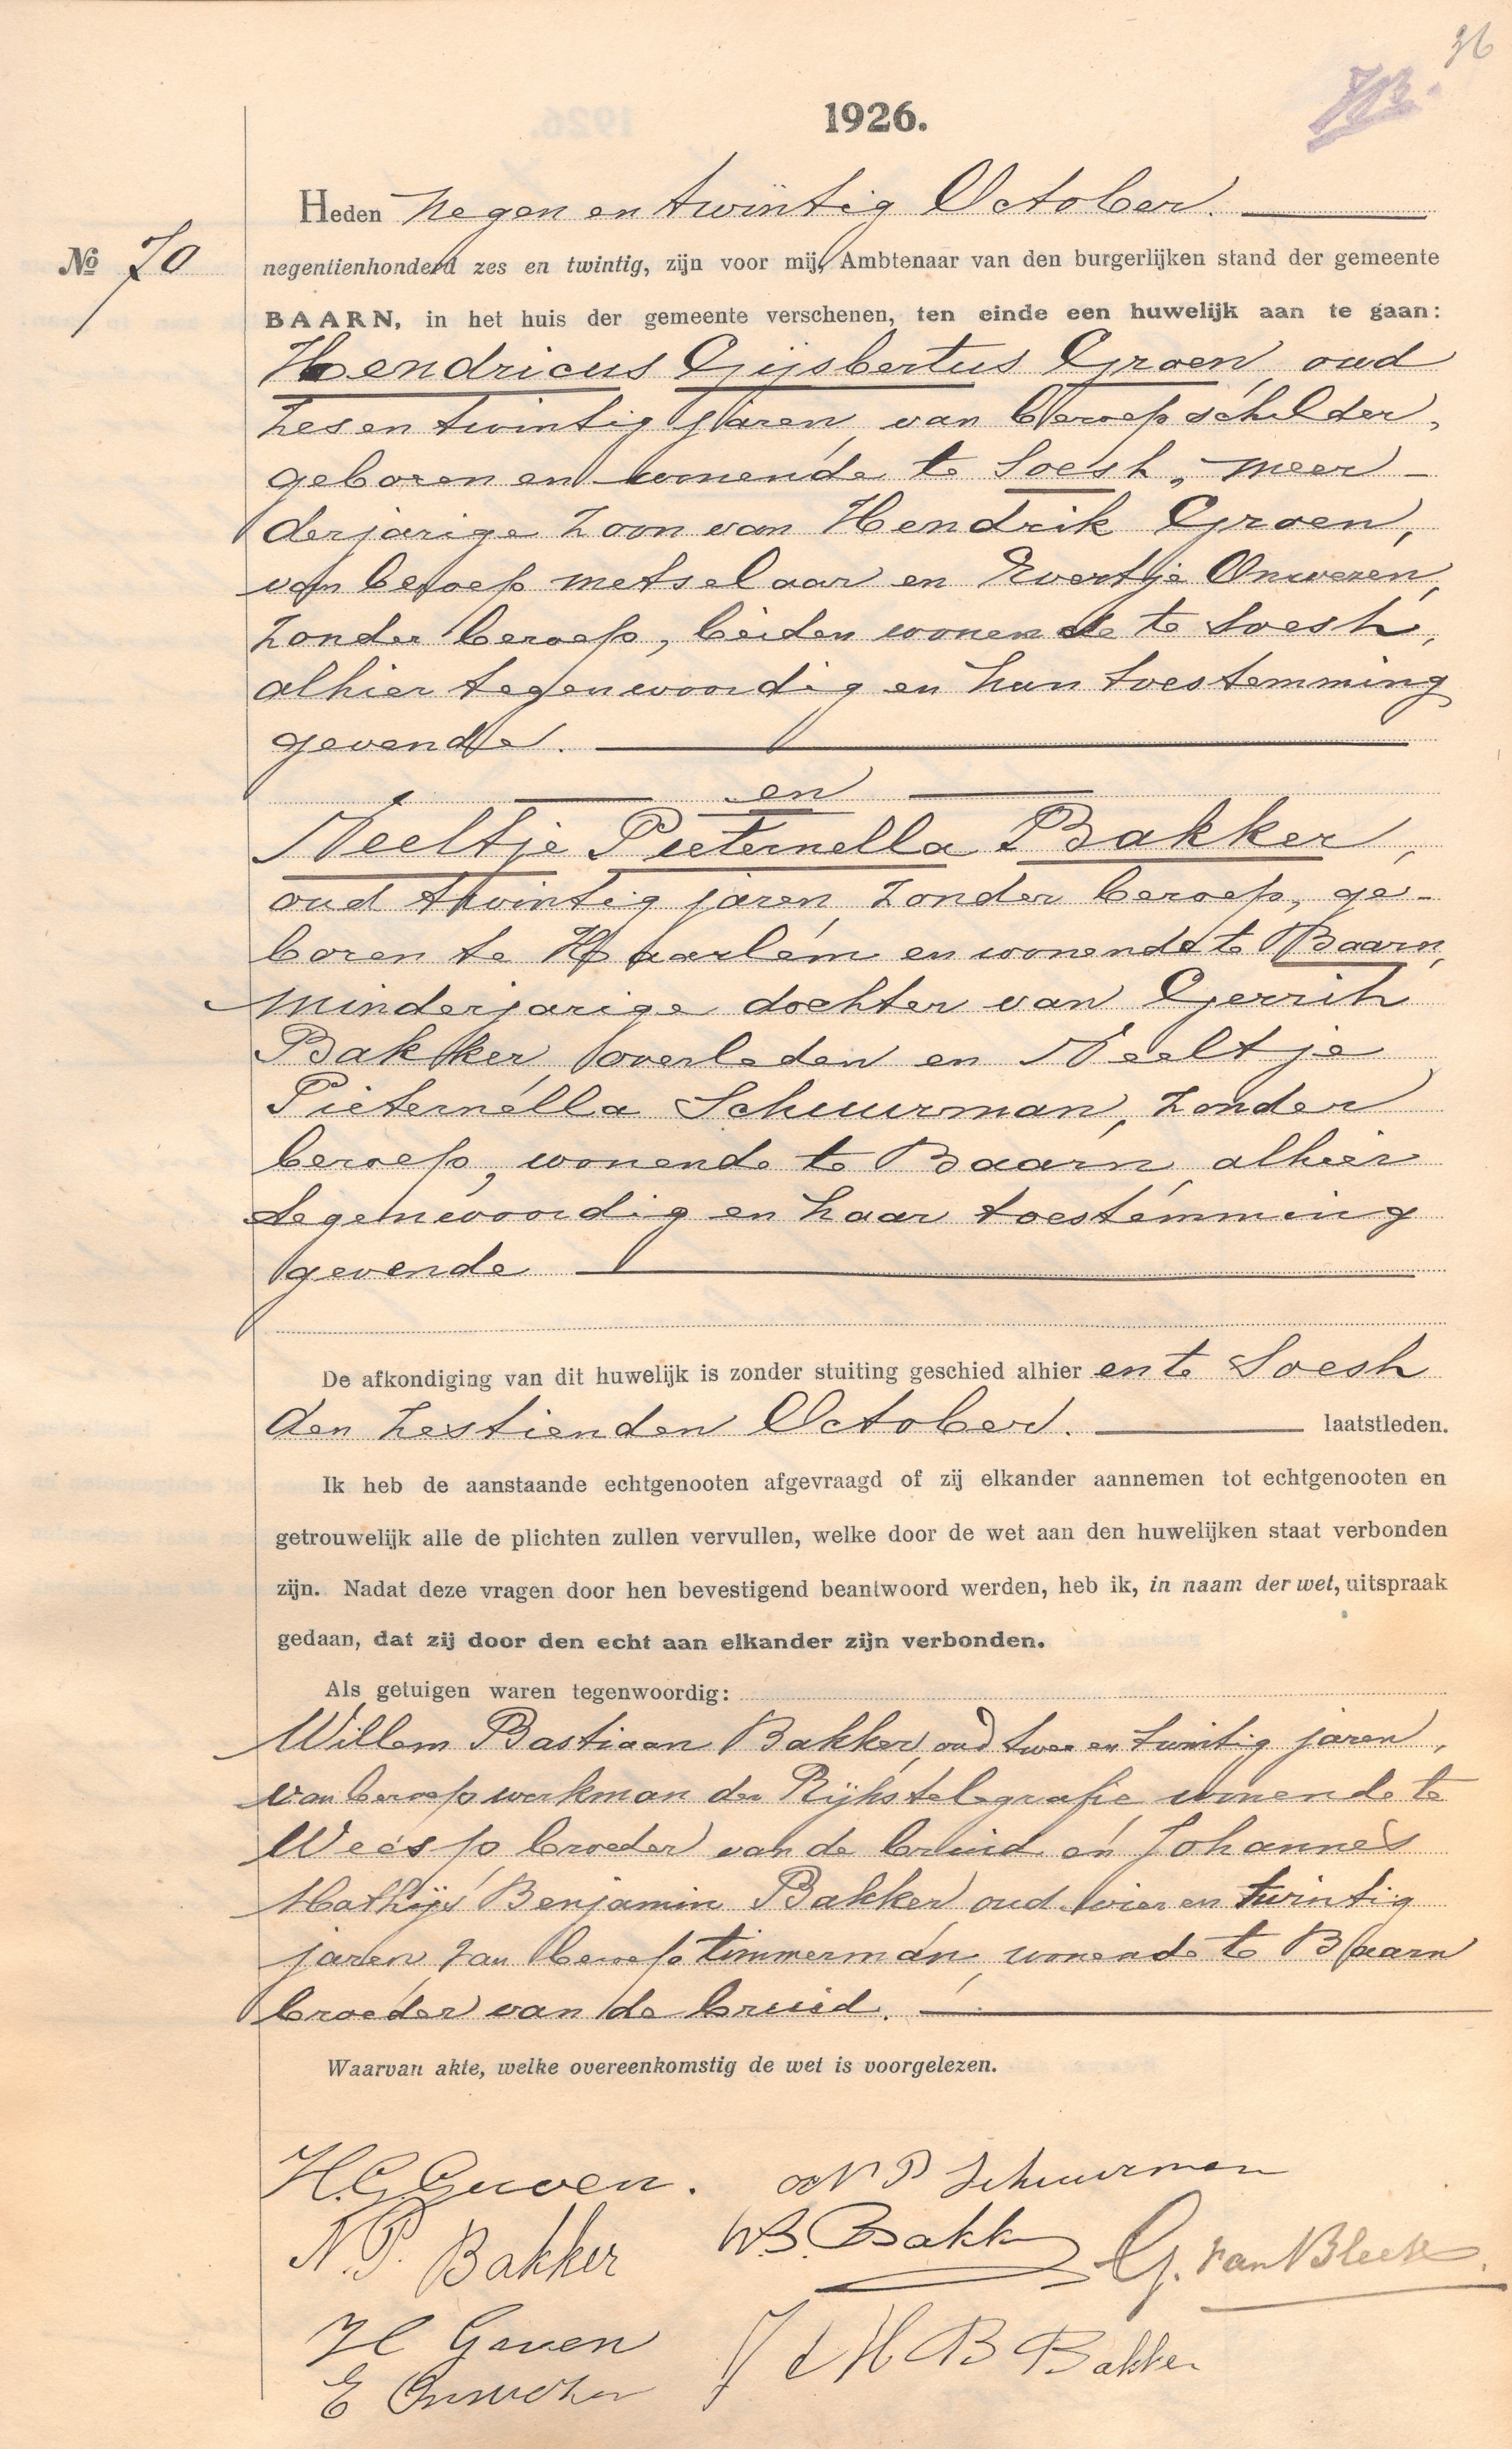 36
1926.
Heden negen en twintig October.
No 70
negentienhonderd zes en twintig, zijn voor mij, Ambtenaar van den burgerlijken stand der gemeente
BAARN, in het huis der gemeente verschenen, ten einde een huwelijk aan te gaan:
Hendricus Gijsbertus Groen, oud
zes en twintig jaren, van beroep schilder,
geboren en wonende te Soest, meer-
derjarige zoon van Hendrik Groen,
van beroep metselaar en Evertje Onwezen,
zonder beroep, beiden wonende te Soest,
alhier tegenwoordig en hun toestemming
gevende.
en
Neeltje Pieternella Bakker,
oud twintig jaren, zonder beroep, ge-
boren te Haarlem en wonende te Baarn,
minderjarige dochter van Gerrit
Bakker, overleden en Neeltje
Pieternella Schuurman, zonder
beroep, wonende te Baarn, alhier
tegenwoordig en haar toestemming
gevende
De afkondiging van dit huwelijk is zonder stuiting geschied alhier en te Soest
den zestienden October. laatstleden.
Ik heb de aanstaande echtgenooten afgevraagd of zij elkander aannemen tot echtgenooten en
getrouwelijk alle de plichten zullen vervullen, welke door de wet aan den huwelijken staat verbonden
zijn. Nadat deze vragen door hen bevestigend beantwoord werden, heb ik, in naam der wet, uitspraak
gedaan, dat zij door den echt aan elkander zijn verbonden.
Als getuigen waren tegenwoordig:
Willem Bastiaan Bakker, oud twee en twintig jaren,
van beroep werkman der Rijkstelegrafie wonende te
Weesp broeder van de bruid en Johannes
Mathijs Benjamin Bakker oud vier en twintig
jaren, van beroep timmerman, wonende te Baarn
broeder van de bruid.
Waarvan akte, welke overeenkomstig de wet is voorgelezen.
H.G. Groen. N P Schuurman
N.P. Bakker W.B. Bakker G. van Bleek
H Groen J M B Bakker
E Onwezen